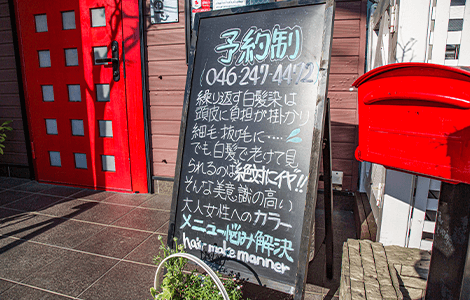 予約制
046-247-4472
繰り返す白髪染は
頭皮に負担が掛かり
細毛抜け毛に・・・・
でも白髪で老けて見
られるのは絶対にイヤ!!
そんな美意識の高い
大人女性へのカラー
メニュー悩み解決
hair make manner